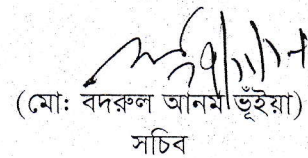 (মো: বদরুল আনম ভূঁইয়া)
সচিব